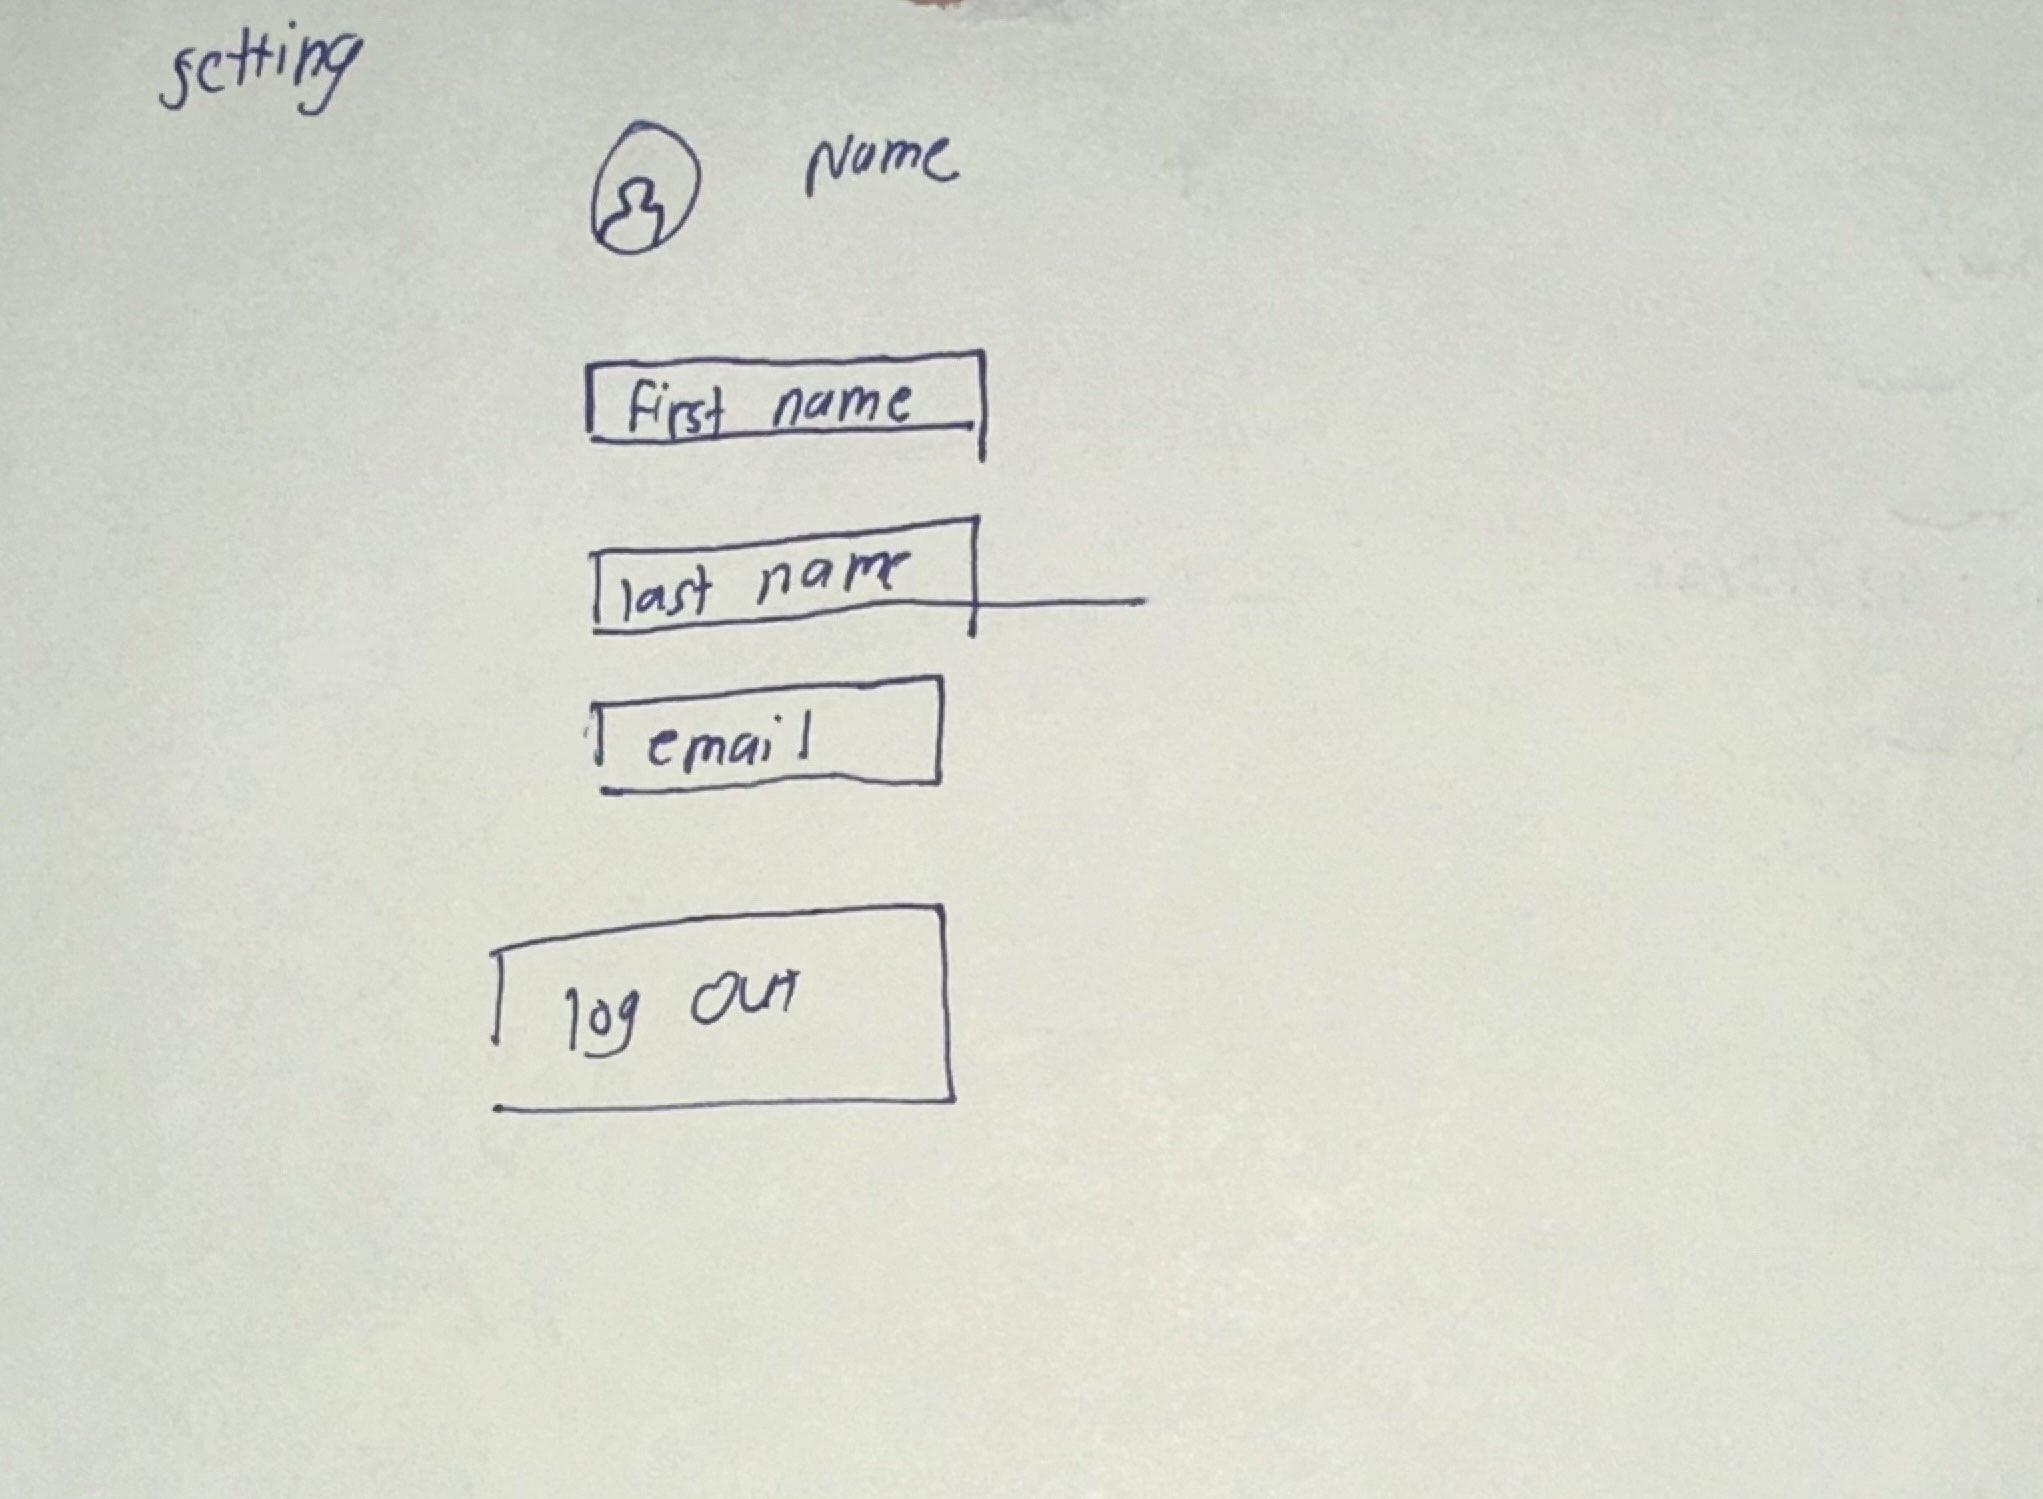 setting
Name
first name
last name
email
log out